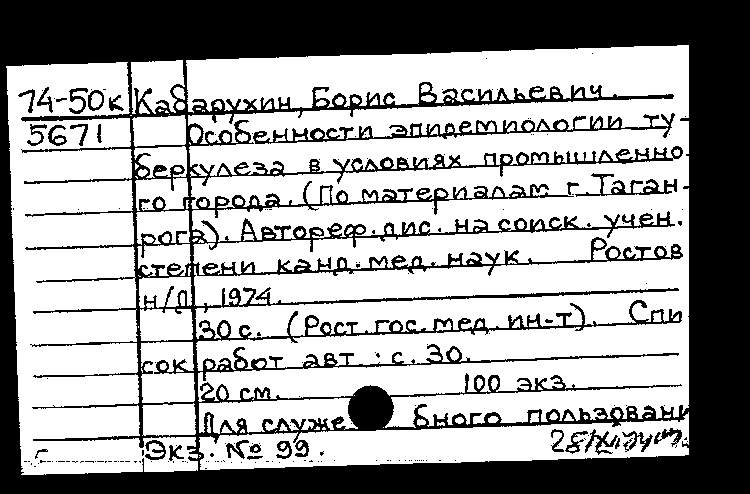 74-50к Кабарухин, Борис Васильевич.
5671 Особенности эпидемиологии ту-
беркулеза в условиях промышленно-
го города. (По материалам г. Таган-
рога). Автореф. дис. на соиск. учен.
степени канд. мед. наук. Ростов
н/Д, 1974.
30 с. (Рост. гос. мед. ин-т). Спи
сок работ авт.: с. 30.
20 см. 100 экз.
Для служебного пользовани
Экз. № 99.